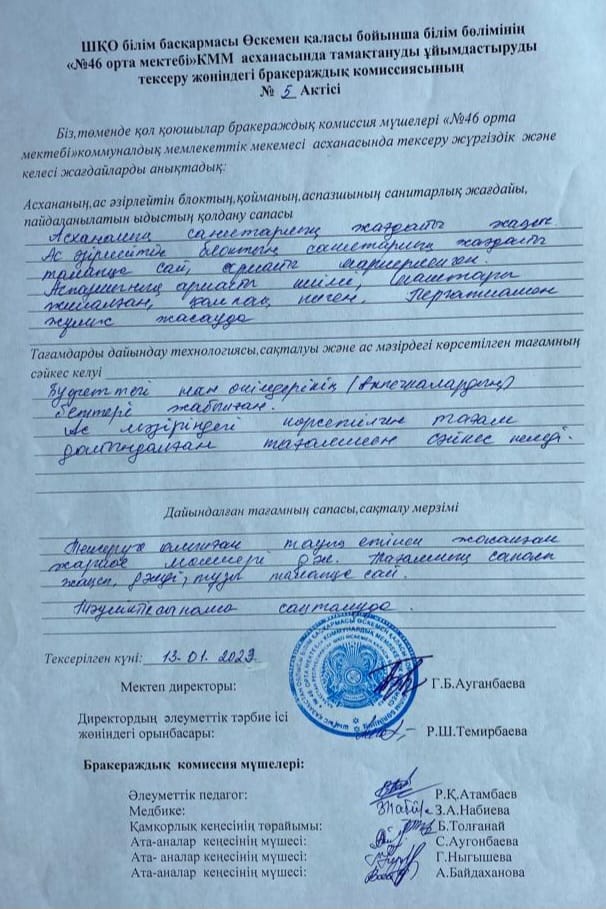 ШҚО білім басқармасы Өскемен қаласы бойынша білім бөлімінің
«№46 орта мектебі»КММ асханасында тамақтануды ұйымдастыруды
тексеру жөніндегі бракераждық комиссиясының
№ 5 Актісі
Біз,төменде қол қоюшылар бракераждық комиссия мүшелері «№46 орта
мектебі»коммуналдық мемлекеттік мекемесі асханасында тексеру жүргіздік және
келесі жағдайларды анықтадық:
Асхананың,ас әзірлейтін блоктың,қойманың,аспазшының санитарлық жағдайы,
пайдаланылатын ыдыстың қолдану сапасы
Асхананың санитарлық жағдайы жақсы.
Ас әзірлейтін блоктың санитарлық жағдайы
талапқа сай,
Аспазшының арнайы киімі, шаштары
жиналған, қалпақ киген. Перчаткамен
жұмыс жасауда
Тағамдарды дайындау технологиясы,сақталуы және ас мәзірдегі көрсетілген тағамның
сәйкес келуі
Буфеттегі нан өнімдерінің (выпечкалардың)
беттері жабылған.
Ас мәзіріндегі көрсетілген тағам
дайындалған тағаммен сәйкес келеді.
Дайындалған тағамның сапасы,сақталу мерзімі
Тексеруге алынған тауық етінен жасалған
жаркое мөлшері Тағамның сапасы
жақсы, дәмді, тұзы талапқа сай.
сақталуда.
Тексерілген күні: 13.01.2023
Мектеп директоры: Г.Б.Ауганбаева
Директордың әлеуметтік тәрбие ісі
жөніндегі орынбасары: Р.Ш.Темирбаева
Бракераждық комиссия мүшелері:
Әлеуметтік педагог: Р.Қ.Атамбаев
Медбике: З.А.Набиева
Қамкорлық кеңесінің төрайымы: Б.Толғанай
Ата-аналар кеңесінің мүшесі: С.Аугонбаева
Ата- аналар кеңесінің мүшесі: Г.Ныгышева
Ата-аналар кеңесінің мүшесі: А.Байдаханова